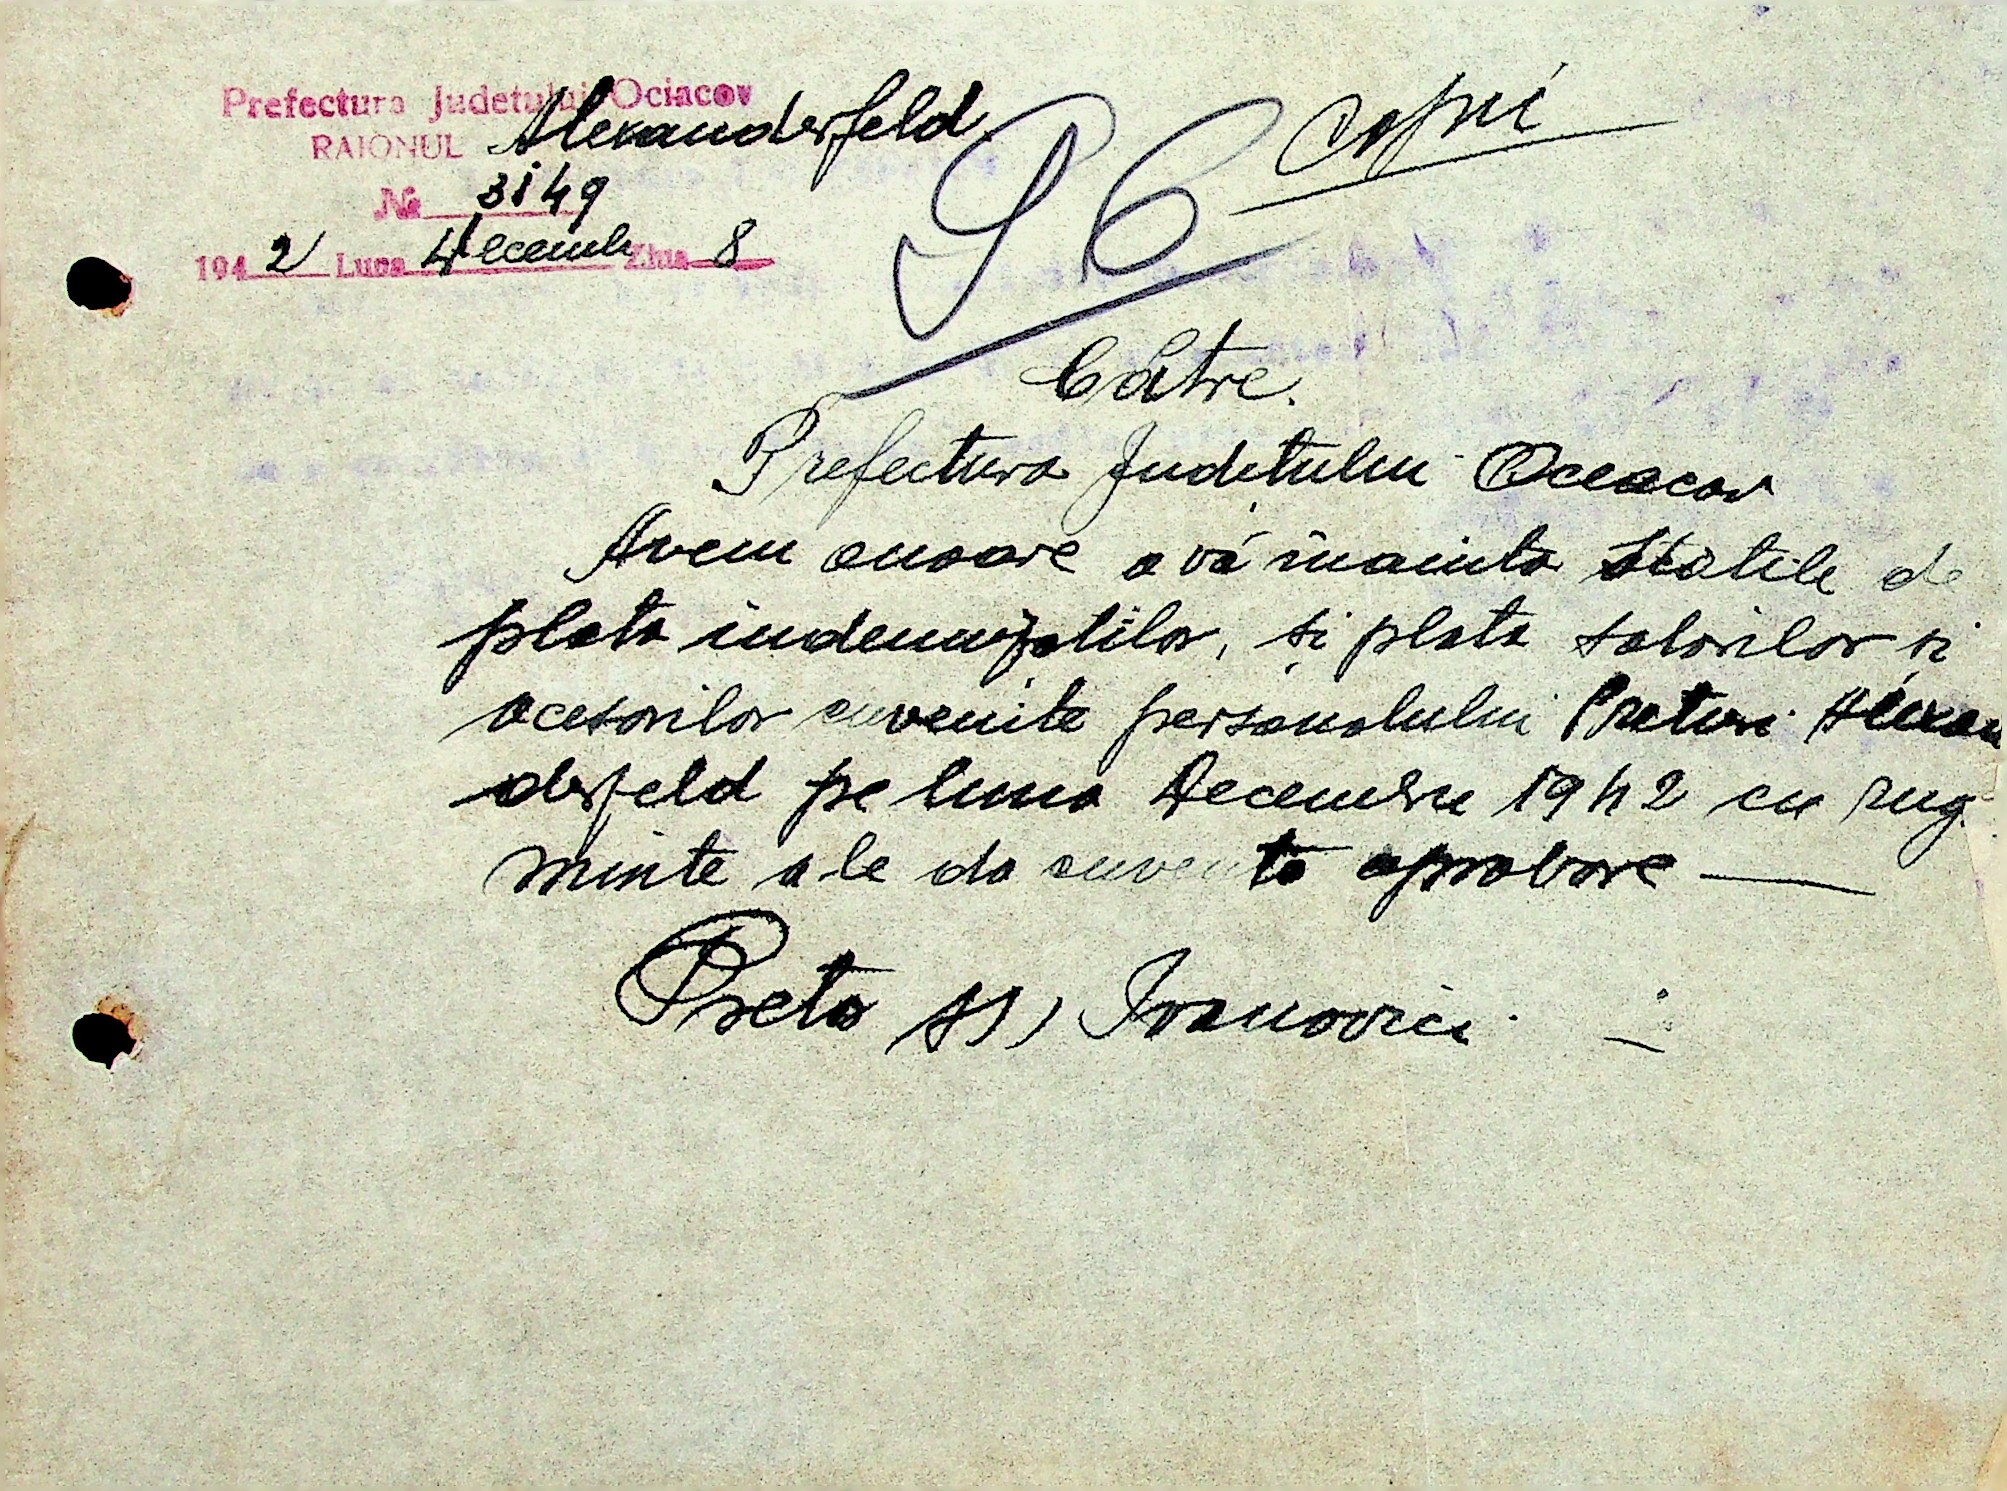 Prefectura Judetului Ociacov
RAIONUL Alexanderfeld
No 3149
1942 Luna Decembr Ziua 8
Copni
Către.
Prefectura Judetului Oceacov
Avem onoare a vă inainta statele de
plata indemnizatilor, si plata salorilor si
acesorilor cuvenite personalului Preturi Alexan
derfeld pe luna Decembrie 1942 cu rug
minte a le da cuvenita aprobare —
Preto ss) Ivanovici